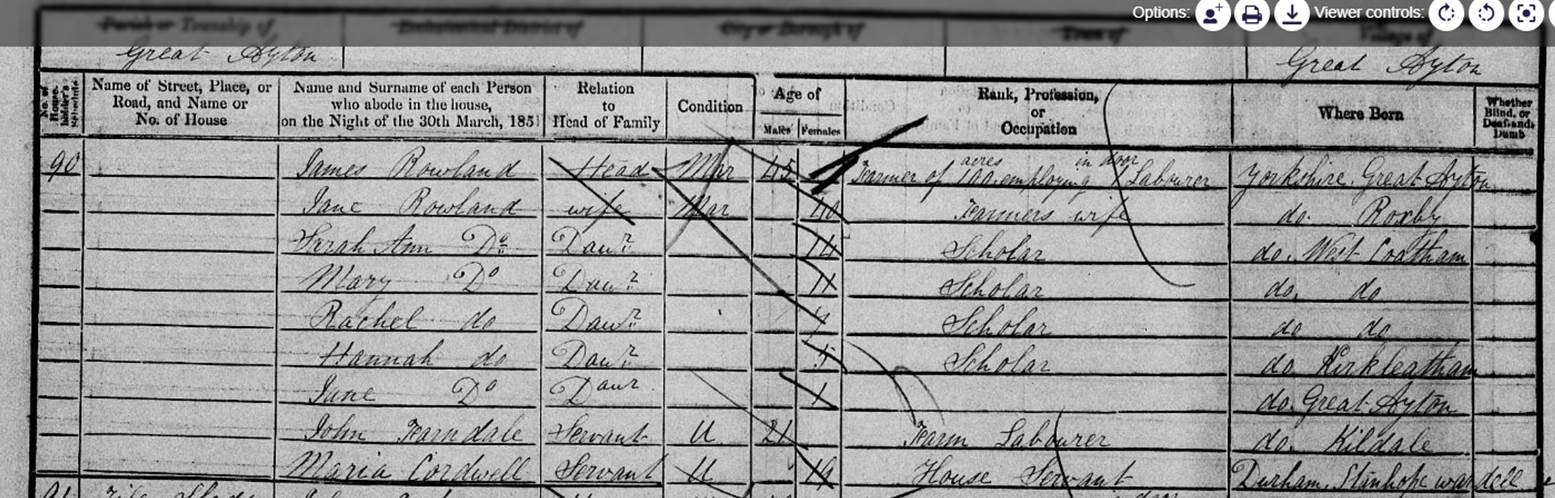 Options: Viewer controls:
Parish or Township of Ecclesiastical District of City or Borough of Town of Village of
Great Ayton Great Ayton
No. of House-holder's Schedule Name of Street, Place, or Road, and Name or No. of House Name and Surname of each Person who abode in the house, on the Night of the 30th March, 1851 Relation to Head of Family Condition Age of Males Females Rank, Profession, or Occupation Where Born Whether Blind, or Deaf-and-Dumb
90 James Rowland Head Mar 45 Farmer of 100 acres employing 1 in door Labourer Yorkshire. Great Ayton
Jane Rowland wife Mar 40 Farmers wife do. Roxby
Sarah Ann Do Daur 14 Scholar do. West Coatham
Mary Do Daur Scholar do. do
Rachel do Daur Scholar do do
Hannah do Daur 5 Scholar do Kirkleatham
Jane Do Daur 1 do. Great Ayton
John Farndale Servant U 21 Farm Labourer do. Kildale
Maria Cordwell Servant U 19 House Servant Durham, Stanhope